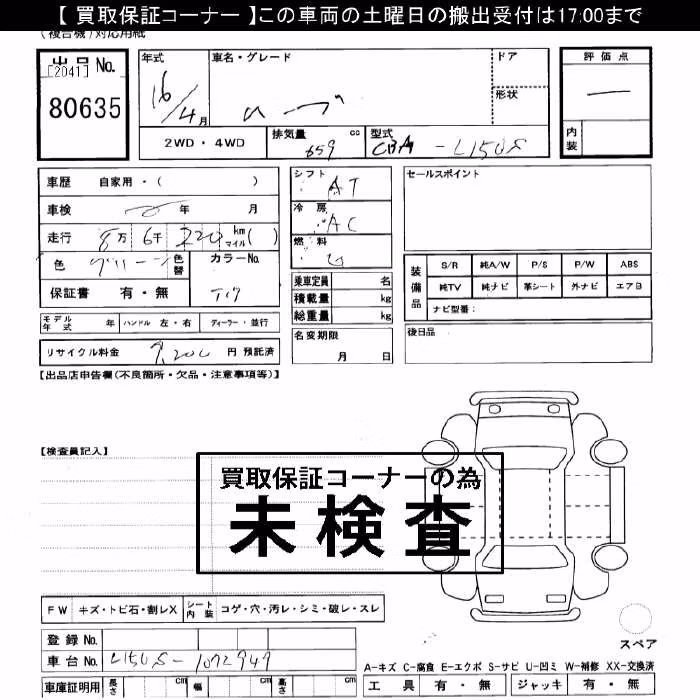 【 買取保証コーナー 】この車両の土曜日の搬出受付は17:00まで
(複合機)対応用紙
出品 No.
[2041]
80635
年式
16/4月
車名・グレード
ムーブ
ドア
形状
評価点
—
内装
2WD ・ 4WD
排気量
659 cc
型式
CBA -L150S
車歴 自家用・( )
車検 年 月
走行 8万 6千 220 km マイル ( )
色 グリーン 色替
カラーNo.
保証書 有・無
シフト
AT
冷房
AC
燃料
G
乗車定員 名
積載量 kg
総重量 kg
セールスポイント
装備品
S/R 純A/W P/S P/W ABS
純TV 純ナビ 革シート 外ナビ エアB
ナビ型番：
モデル年式 年 ハンドル 左・右 ディーラー・並行
リサイクル料金 9,200 円 預託済
名変期限
月 日
後日品
【出品店申告欄(不良箇所・欠品・注意事項等)】
【検査員記入】
買取保証コーナーの為
未検査
FW キズ・トビ石・割レX シート内装 コゲ・穴・汚レ・シミ・破レ・スレ
スペア
登録 No.
車台 No. L150S-1072949
A-キズ C-腐食 E-エクボ S-サビ U-凹ミ W-補修 XX-交換済
車庫証明用 長さ cm 幅 cm 高さ cm
工具 有・無 ジャッキ 有・無